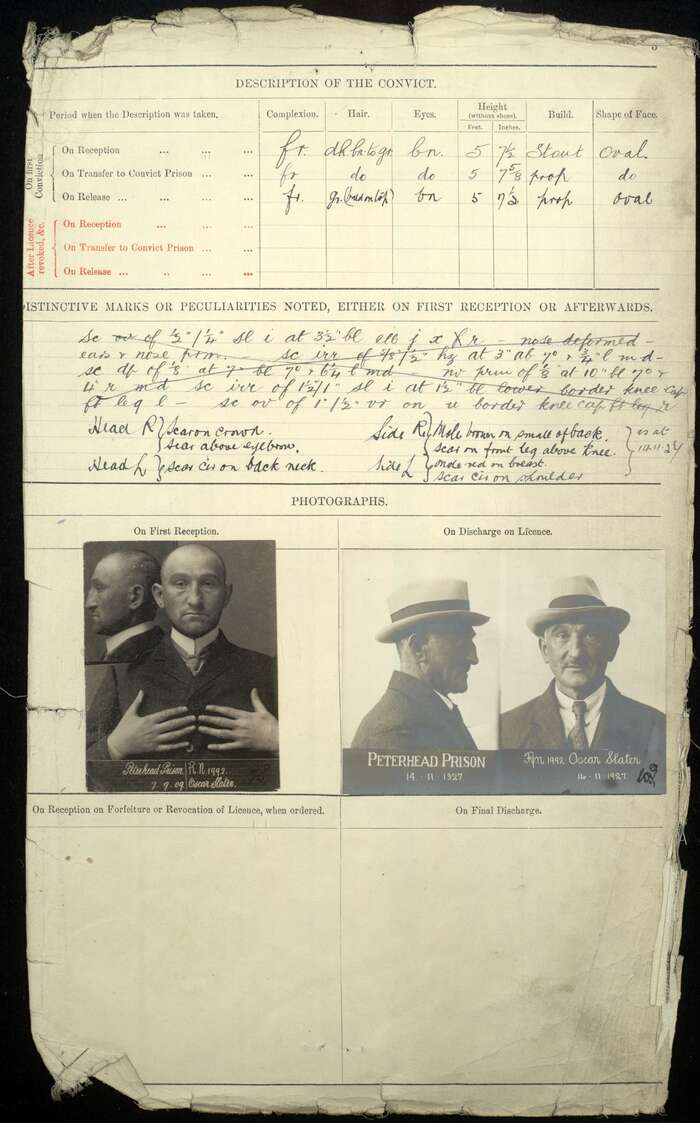 DESCRIPTION OF THE CONVICT.
Period when the Description was taken. Complexion. Hair. Eyes. Height (without shoes). Feet. Inches. Build. Shape of Face.
On first Conviction
On Reception ... ... ... fr. dk bn to gr bn. 5 7½ Stout Oval.
On Transfer to Convict Prison ... ... fr do do 5 7⅝ prop do
On Release ... ... ... ... fr. gr. (bald on top) bn 5 7½ prop oval
After Licence revoked, &c.
On Reception ... ... ...
On Transfer to Convict Prison ... ...
On Release ... .. ... ...
DISTINCTIVE MARKS OR PECULIARITIES NOTED, EITHER ON FIRST RECEPTION OR AFTERWARDS.
sc ov of ½" ¼" sl i at 3½" bl elb j x r – nose deformed –
ears & nose prom. – sc irr of hz at 3" at 7° & ¾" l m d –
sc df of ⅛" at 7° bl 7° & 6¼ l m d nv prm of ⅛ at 10" bl 7° &
4" r m d sc irr of 1½/1" sl i at 1½" bl lower border knee cap
ft leg l – sc ov of 1" ½" vr on u border knee cap ft leg r
Head R } Scar on crown. Side R } Mole brown on small of back.
Scar above eyebrow. Scar on front leg above knee.
Head L } Scar cir on back neck. Side L } mole red on breast.
scar cir on shoulder
PHOTOGRAPHS.
On First Reception. On Discharge on Licence.
Peterhead Prison R.N. 1992.
7.9.09 Oscar Slater.
PETERHEAD PRISON
14 · 11 · 1927
R/n 1992 Oscar Slater
14 · 11 · 1927.
On Reception on Forfeiture or Revocation of Licence, when ordered. On Final Discharge.